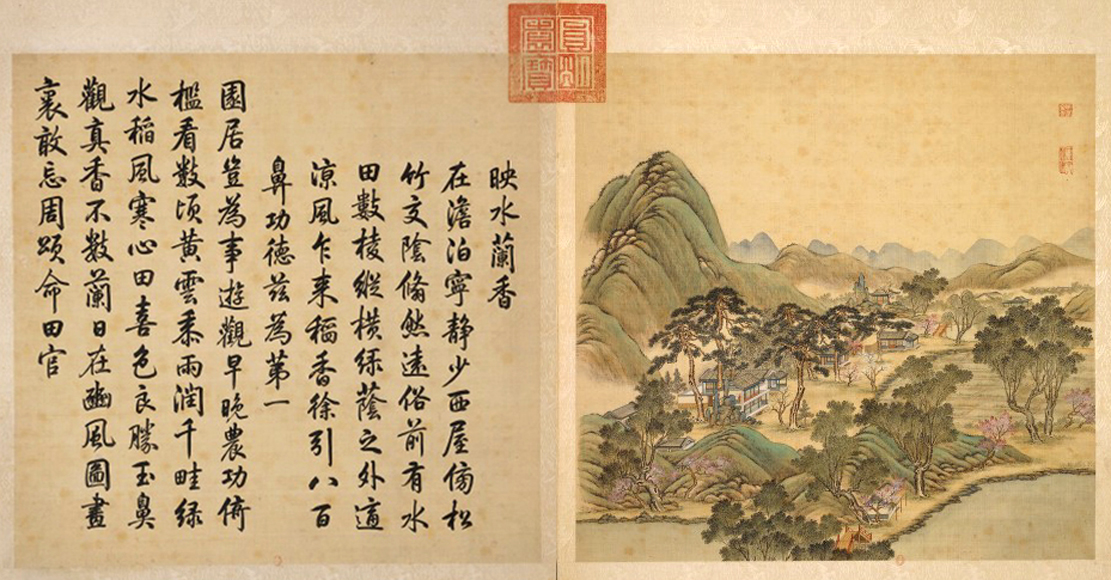 映水蘭香
在澹泊寧静少西屋傍松
竹交陰翛然遠俗前有水
田數棱縱橫緑蔭之外適
涼風乍来稻香徐引八百
鼻功德兹為第一
園居豈為事遊觀早晚農功倚
檻看數頃黄雲黍雨潤千畦緑
水稻風寒心田喜色良勝玉鼻
觀真香不數蘭日在豳風圖畫
裏敢忘周頌命田官